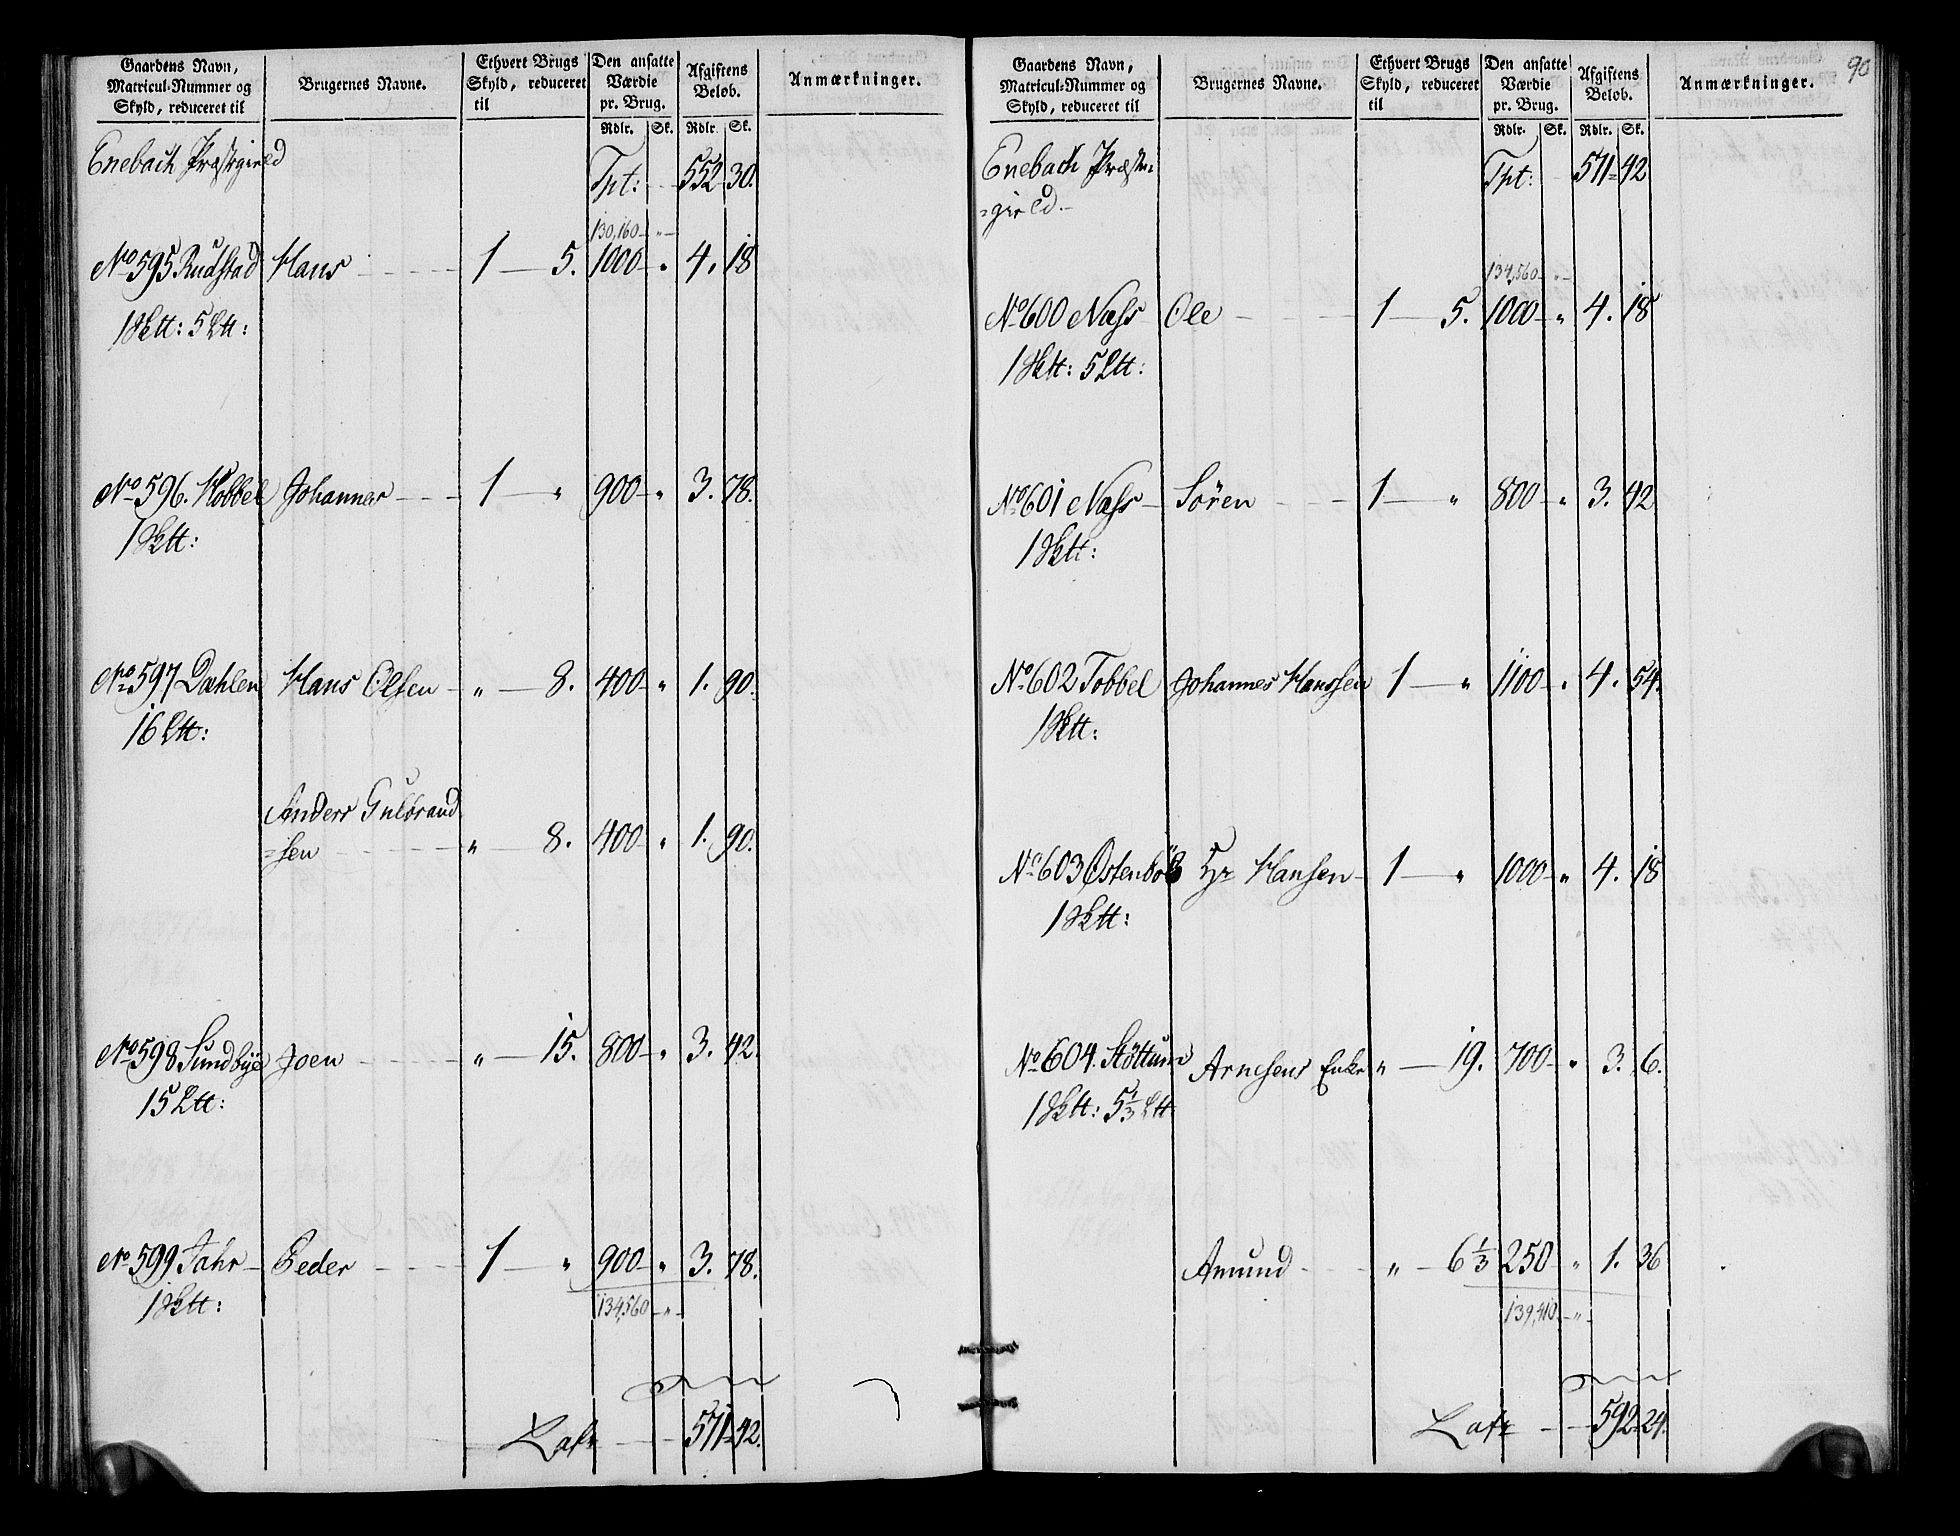 Gaardens Navn, Matricul-Nummer og Skyld, reduceret til
Brugernes Navne.
Ethvert Brugs Skyld, reduceret til
Den ansatte Værdie pr. Brug.
Afgiftens Beløb.
Anmærkninger.
Rdlr. Sk. Rdlr. Sk.
Enebach Præstegield Tpt: 552 30.
130,160 "
No 595 Rudstad Hans 1 5. 1000 " 4. 18
1 Sktt: 5 Ltt:
No 596. Hobbel Johannes 1 " 900 " 3. 78.
1 Sktt:
No 597 Dæhlen Hans Olsen " 8. 400 " 1. 90.
16 Ltt:
Anders Gulbrand
=sen " 8. 400 " 1. 90.
No 598 Sundbye Joen " 15. 800 " 3. 42.
15 Ltt:
No 599 Jahr Peder 1 " 900 " 3. 78.
1 Sktt:
134,560 "
Lats 571 42.
90
Gaardens Navn, Matricul-Nummer og Skyld, reduceret til
Brugernes Navne.
Ethvert Brugs Skyld, reduceret til
Den ansatte Værdie pr. Brug.
Afgiftens Beløb.
Anmærkninger.
Rdlr. Sk. Rdlr. Sk.
Enebach Præste
=gield Tpt: 571 42
134,560 "
No 600 Næss Ole 1 5. 1000 " 4. 18
1 Sktt: 5 Ltt:
No 601 Næss Sören 1 " 800 " 3. 42
1 Sktt:
No 602 Tobbel Johannes Hanssen 1 " 1100 " 4. 54.
1 Sktt:
No 603 Østenböe Hr Hansen 1 " 1000 " 4. 18
1 Sktt:
No 604. Stöttum Arnesens Enke " 19. 700 " 3. 6.
1 Sktt: 5 1/3 Ltt
Amund " 6 1/3 250 " 1. 36
139,410 "
Lats 592 24.